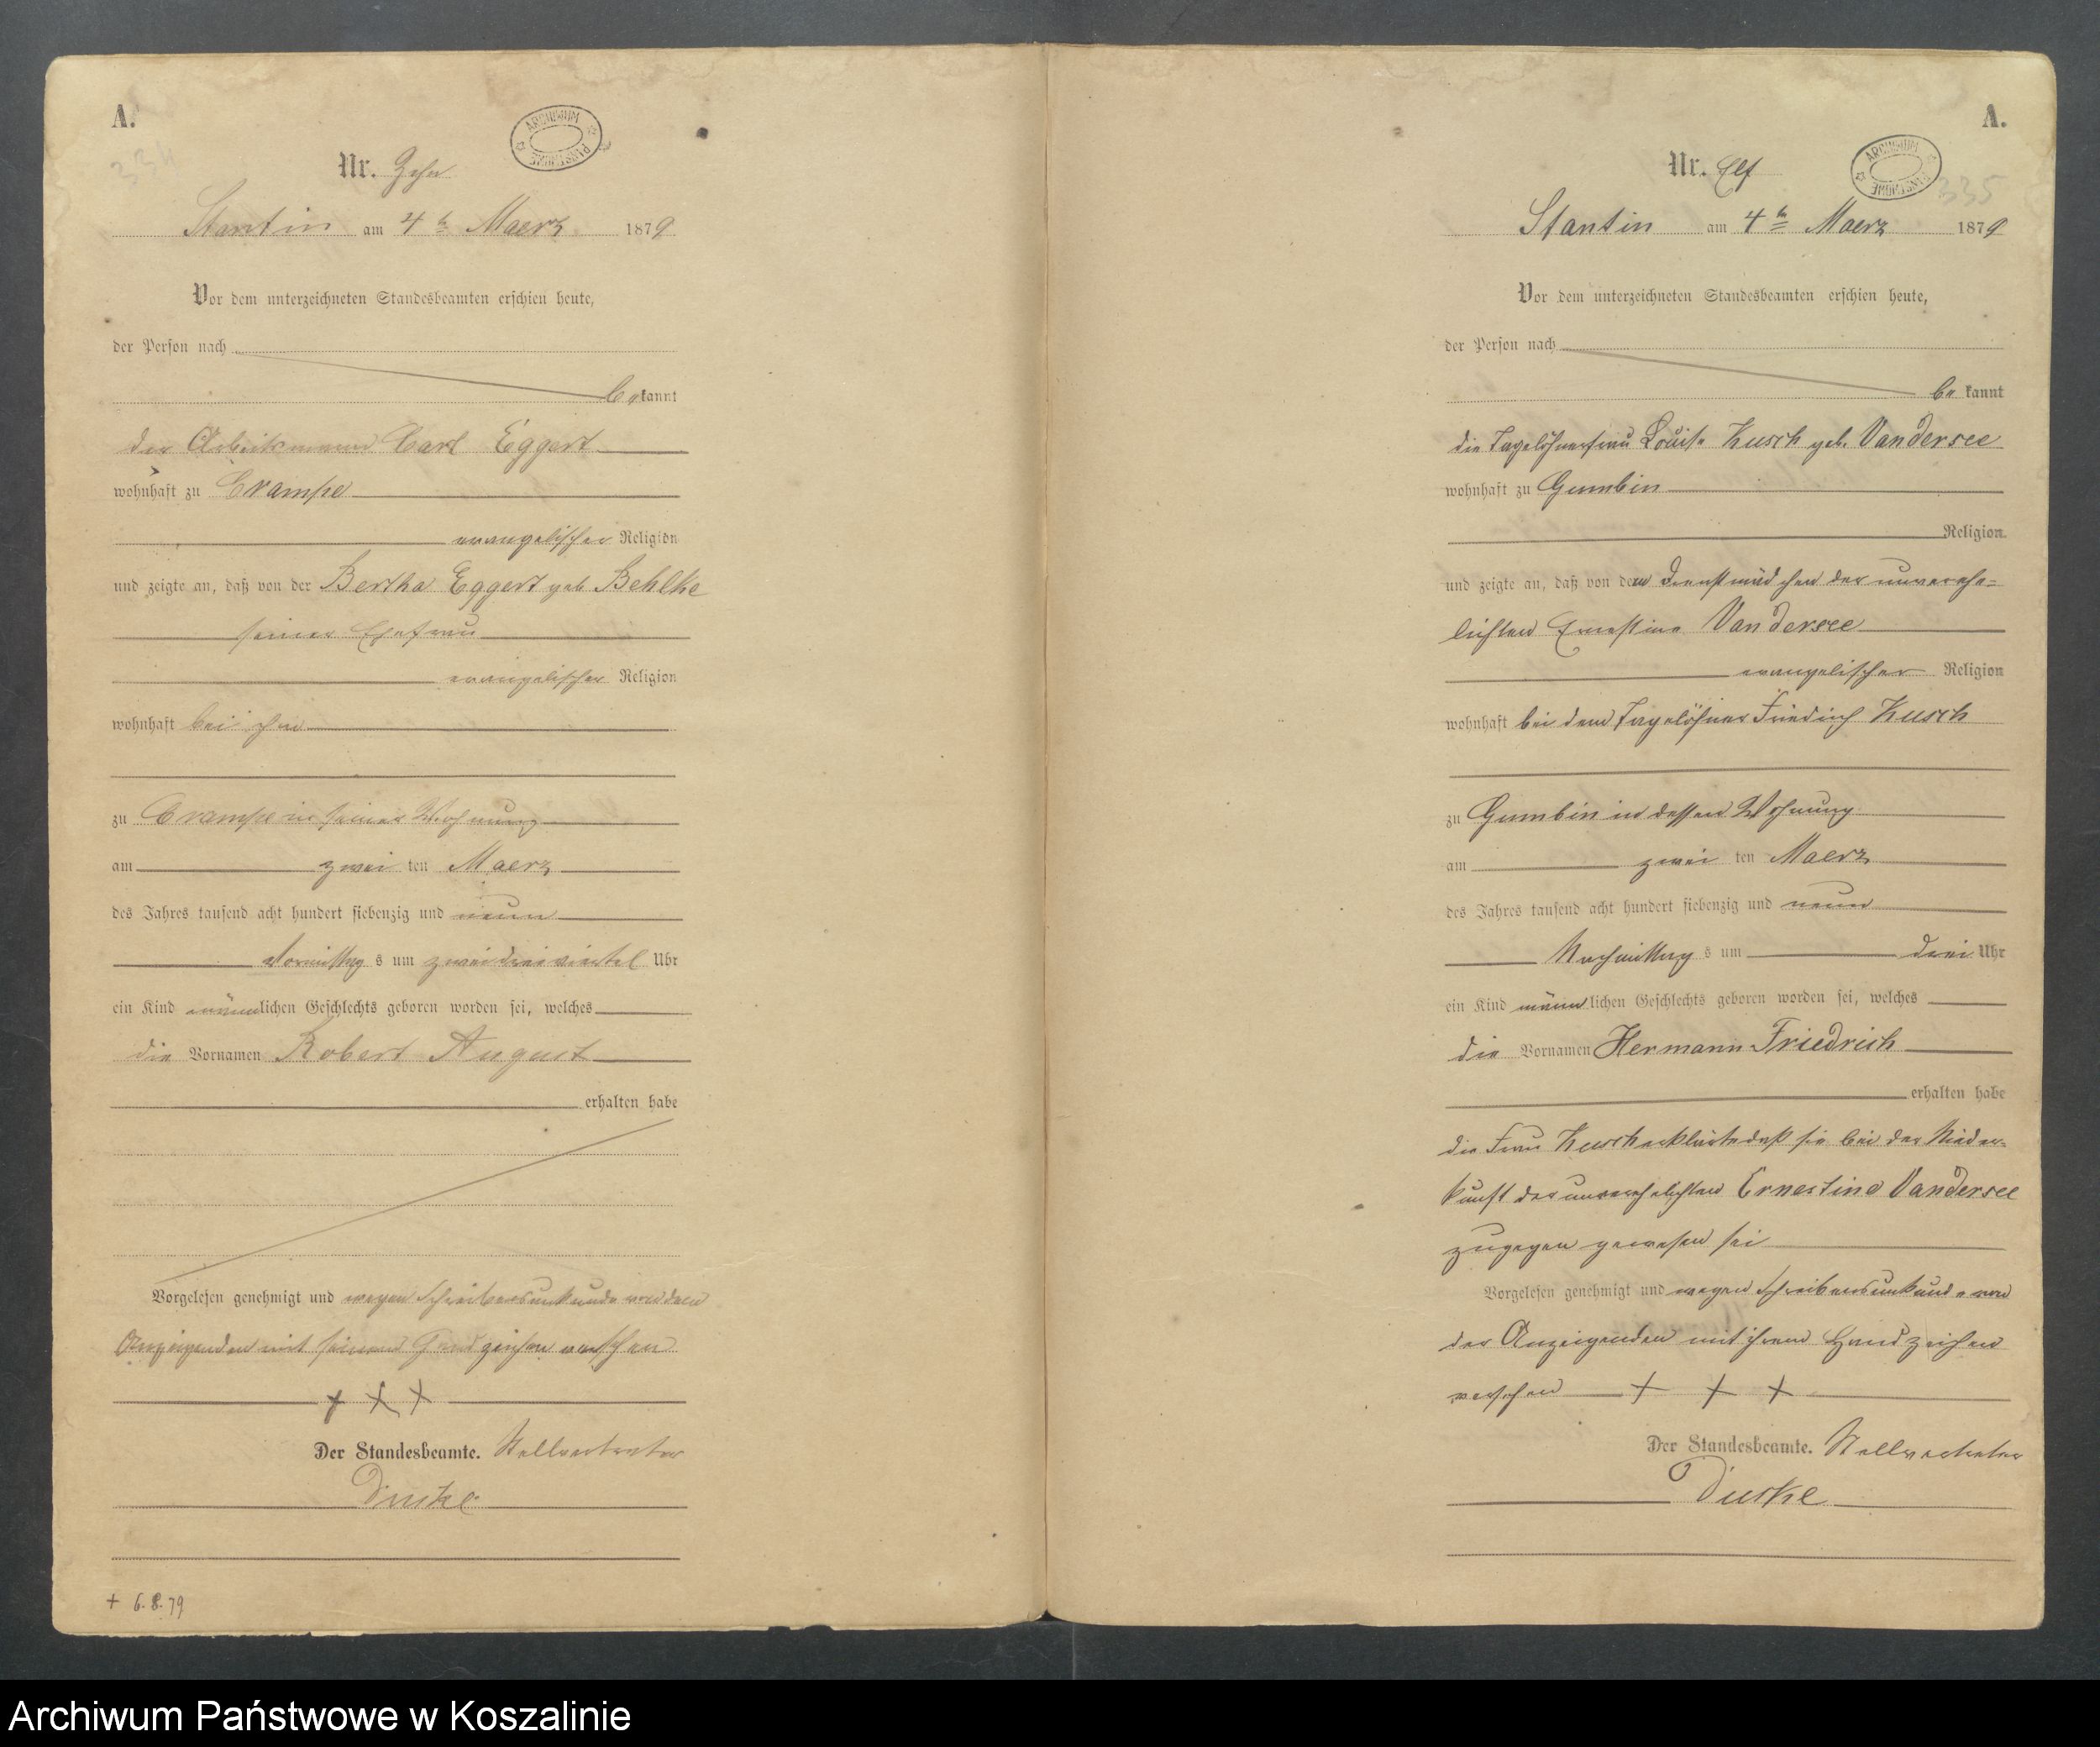 A.
334
ARCHIWUM PAŃSTWOWE
Nr. Zehn
Stantin am 4ten Maerz 1879
Vor dem unterzeichneten Standesbeamten erschien heute,
der Person nach
bekannt
der Arbeitsmann Carl Eggert
wohnhaft zu Crampe
evangelischer Religion
und zeigte an, daß von der Bertha Eggert geb Behlke
seiner Ehefrau
evangelischer Religion
wohnhaft bei ihm
zu Crampe in seiner Wohnung
am zwei ten Maerz
des Jahres tausend acht hundert siebenzig und neun
Vormittag s um zwei dreiviertel Uhr
ein Kind männlichen Geschlechts geboren worden sei, welches
die Vornamen Robert August
erhalten habe
Vorgelesen genehmigt und wegen Schreibensunkunde von dem
Anzeigenden mit seinem Handzeichen versehen
+ + +
Der Standesbeamte. Stellvertreter
+ 6.8.79
A.
ARCHIWUM PAŃSTWOWE
335
Nr. Elf
Stantin am 4ten Maerz 1879
Vor dem unterzeichneten Standesbeamten erschien heute,
der Person nach
be kannt
die Tagelöhnerfrau Louise Kusch geb. Vandersee
wohnhaft zu Gumbin
Religion
und zeigte an, daß von dem Dienstmädchen der unverehe=
lichten Ernestine Vandersee
evangelischer Religion
wohnhaft bei dem Tagelöhner Friedrich Kusch
zu Gumbin in dessen Wohnung
am zwei ten Maerz
des Jahres tausend acht hundert siebenzig und neun
Nachmittag s um drei Uhr
ein Kind männlichen Geschlechts geboren worden sei, welches
die Vornamen Hermann Friedrich
erhalten habe
die Frau Kusch erklärte daß sie bei der Nieder=
kunft der unverehelichten Ernestine Vandersee
zugegen gewesen sei
Vorgelesen genehmigt und wegen Schreibensunkunde von
der Anzeigenden mit ihrem Handzeichen
versehen + + +
Der Standesbeamte. Stellvertreter
Archiwum Państwowe w Koszalinie